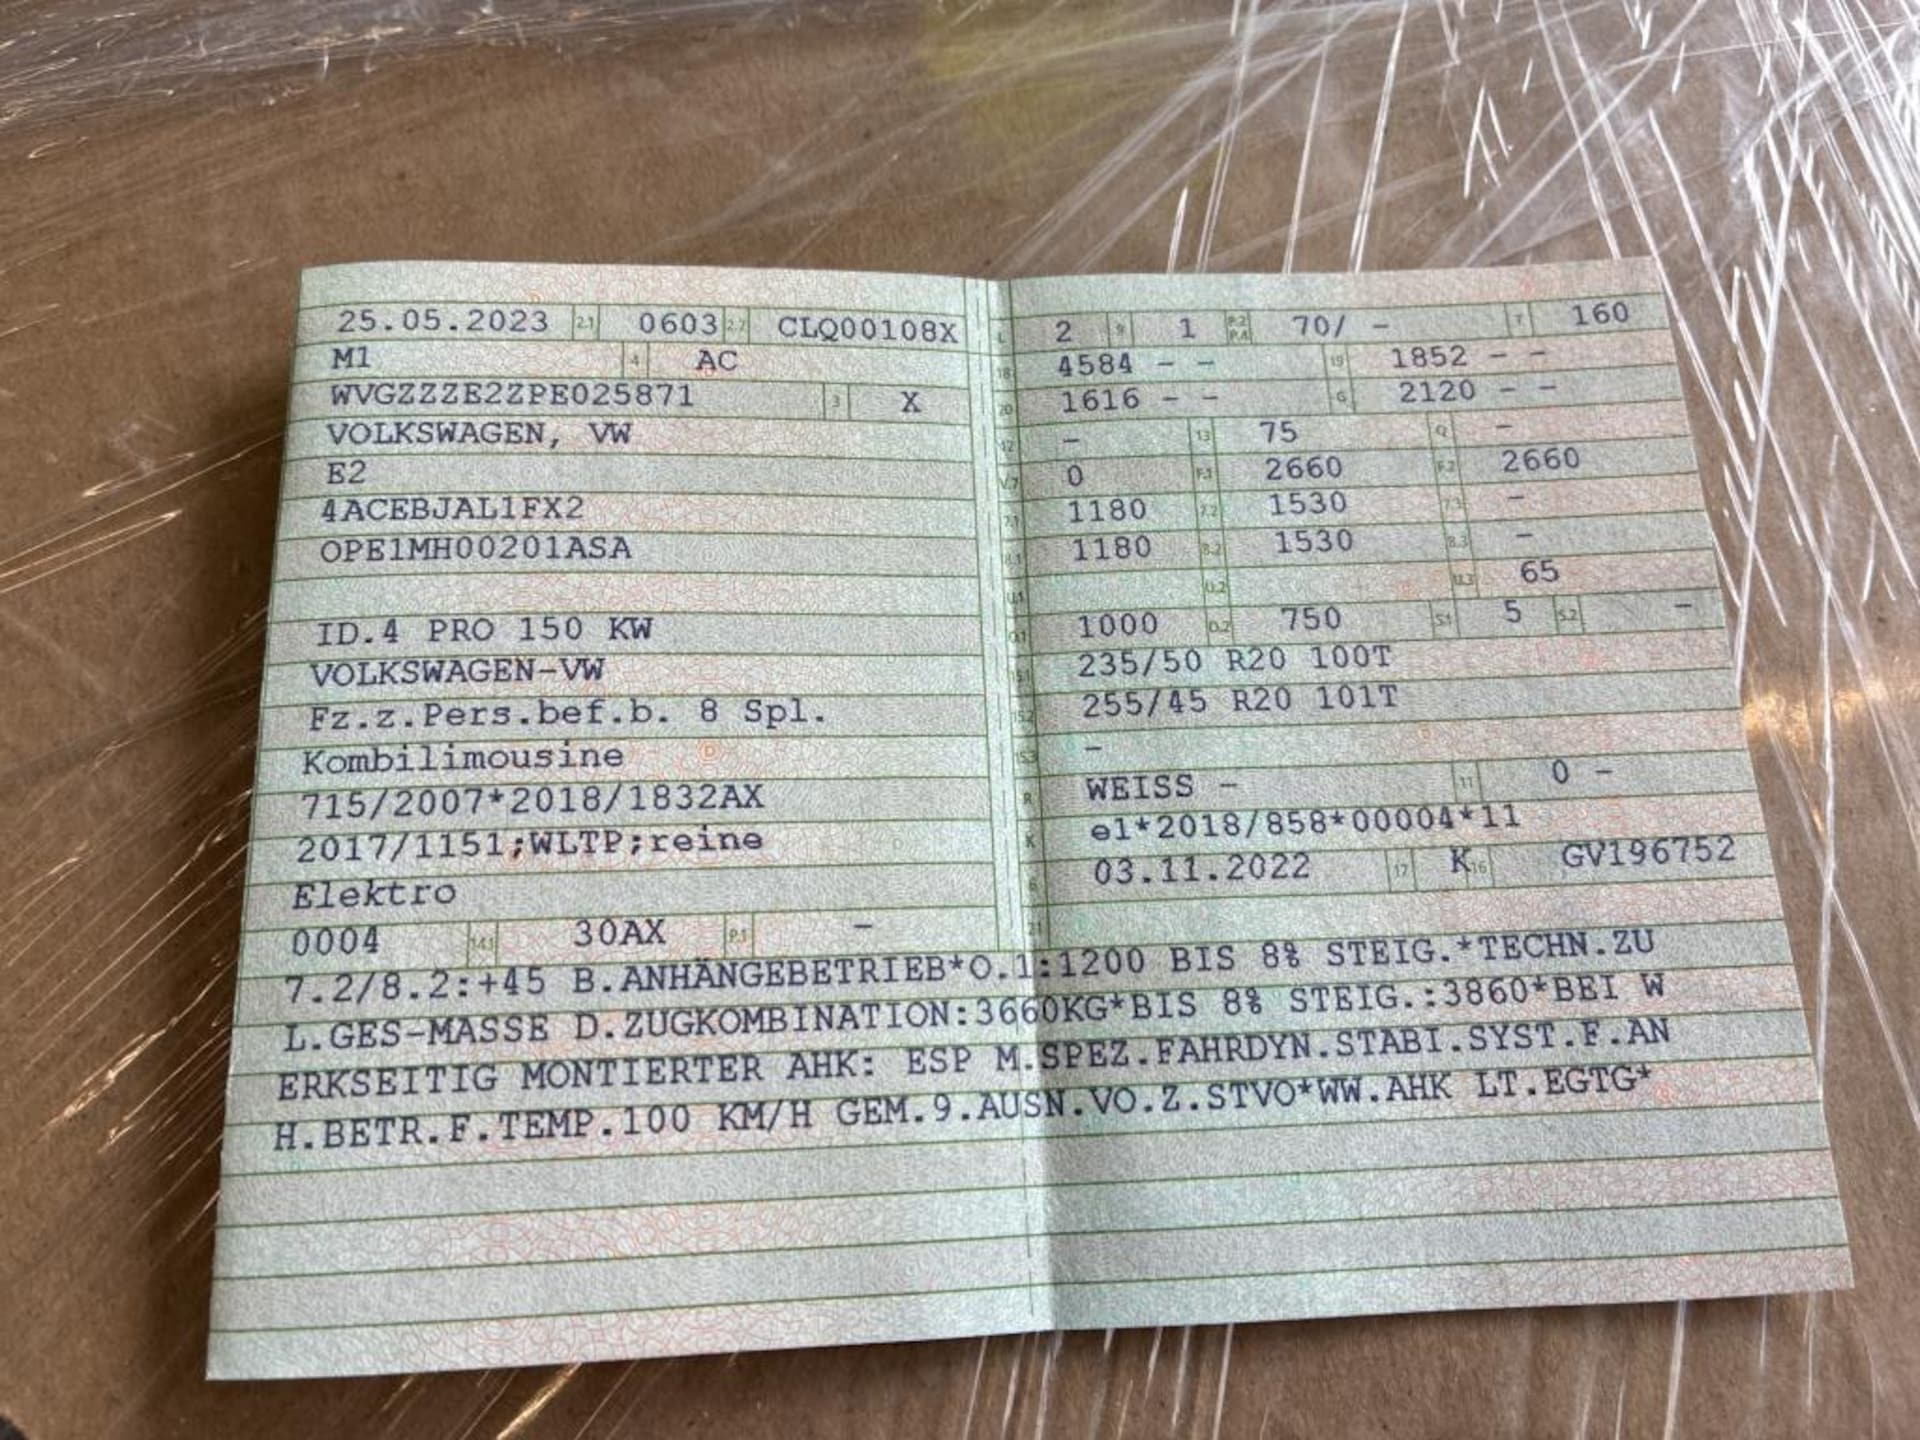 25.05.2023 2.1 0603 2.2 CLQ00108X
M1 4 AC
WVGZZZE2ZPE025871 3 X
VOLKSWAGEN, VW
E2
4ACEBJAL1FX2
OPE1MH00201ASA
ID.4 PRO 150 KW
VOLKSWAGEN-VW
Fz.z.Pers.bef.b. 8 Spl.
Kombilimousine
715/2007*2018/1832AX
2017/1151;WLTP;reine
Elektro
0004 14.1 30AX P.1 -
L 2 9 1 P.2 P.4 70/ - T 160
18 4584 - - 19 1852 - -
20 1616 - - G 2120 - -
12 - 13 75 Q -
V.7 0 F.1 2660 F.2 2660
7.1 1180 7.2 1530 7.3 -
8.1 1180 8.2 1530 8.3 -
U.1 U.2 U.3 65
O.1 1000 O.2 750 S.1 5 S.2 -
15.1 235/50 R20 100T
15.2 255/45 R20 101T
15.3 -
R WEISS - 11 0 -
K e1*2018/858*00004*11
6 03.11.2022 17 K 16 GV196752
21
7.2/8.2:+45 B.ANHÄNGEBETRIEB*O.1:1200 BIS 8% STEIG.*TECHN.ZU
L.GES-MASSE D.ZUGKOMBINATION:3660KG*BIS 8% STEIG.:3860*BEI W
ERKSEITIG MONTIERTER AHK: ESP M.SPEZ.FAHRDYN.STABI.SYST.F.AN
H.BETR.F.TEMP.100 KM/H GEM.9.AUSN.VO.Z.STVO*WW.AHK LT.EGTG*